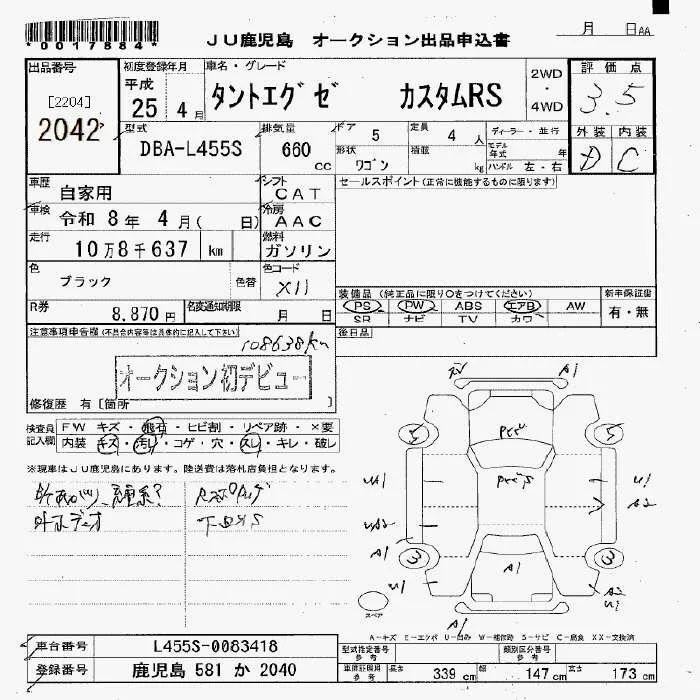 *0017884*
JU鹿児島 オークション出品申込書
月 日AA
出品番号
[2204]
2042
初度登録年月
平成
25 4月
車名・グレード
タントエグゼ カスタムRS
2WD
・
4WD
評価点
3.5
外装 内装
D C
型式
DBA-L455S
排気量
660
cc
ドア 5
定員 4 人
形状 ワゴン
積載 kg
ディーラー・並行
モデル年式 年
ハンドル 左・右
車歴
自家用
シフト
CAT
セールスポイント(正常に機能するものに限ります)
車検
令和 8年 4月( 日)
冷房
AAC
走行
10万8千637 km
燃料
ガソリン
色
ブラック
色替
色コード
X11
R券
8,870円
名変通知期限
月 日
装備品(純正品に限り○をつけてください)
PS PW ABS エアB AW
SR ナビ TV カワ
新車保証書
有・無
後日品
注意事項申告欄(不具合内容等は具体的に記入して下さい)
108638km
オークション初デビュー
修復歴 有[箇所 ]
検査員記入欄
FW キズ・飛石・ヒビ割・リペア跡・×要
内装 キズ・汚れ・コゲ・穴・スレ・キレ・破し
※現車はJU鹿児島にあります。陸送費は落札店負担となります。
外ホディオ
A1
5 5
U1
A2
A1
3 3
A1
U1
A2
U1
A1
スペア
A-キズ E-エクボ U-凹み W-補修跡 S-サビ C-腐食 XX-交換済
車台番号
L455S-0083418
登録番号
鹿児島 581 か 2040
型式指定番号
参考
類別区分番号
参考
車検証記載
参考
長さ 339 cm
幅 147 cm
高さ 173 cm